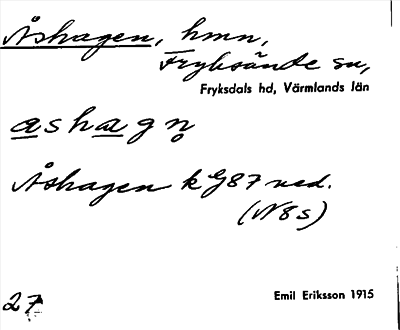 Åshagen, hmn,
Fryksände sn,
Fryksdals hd, Värmlands län
ashagn̥
Åshagen k G87 ned.
(N8s)
27
Emil Eriksson 1915